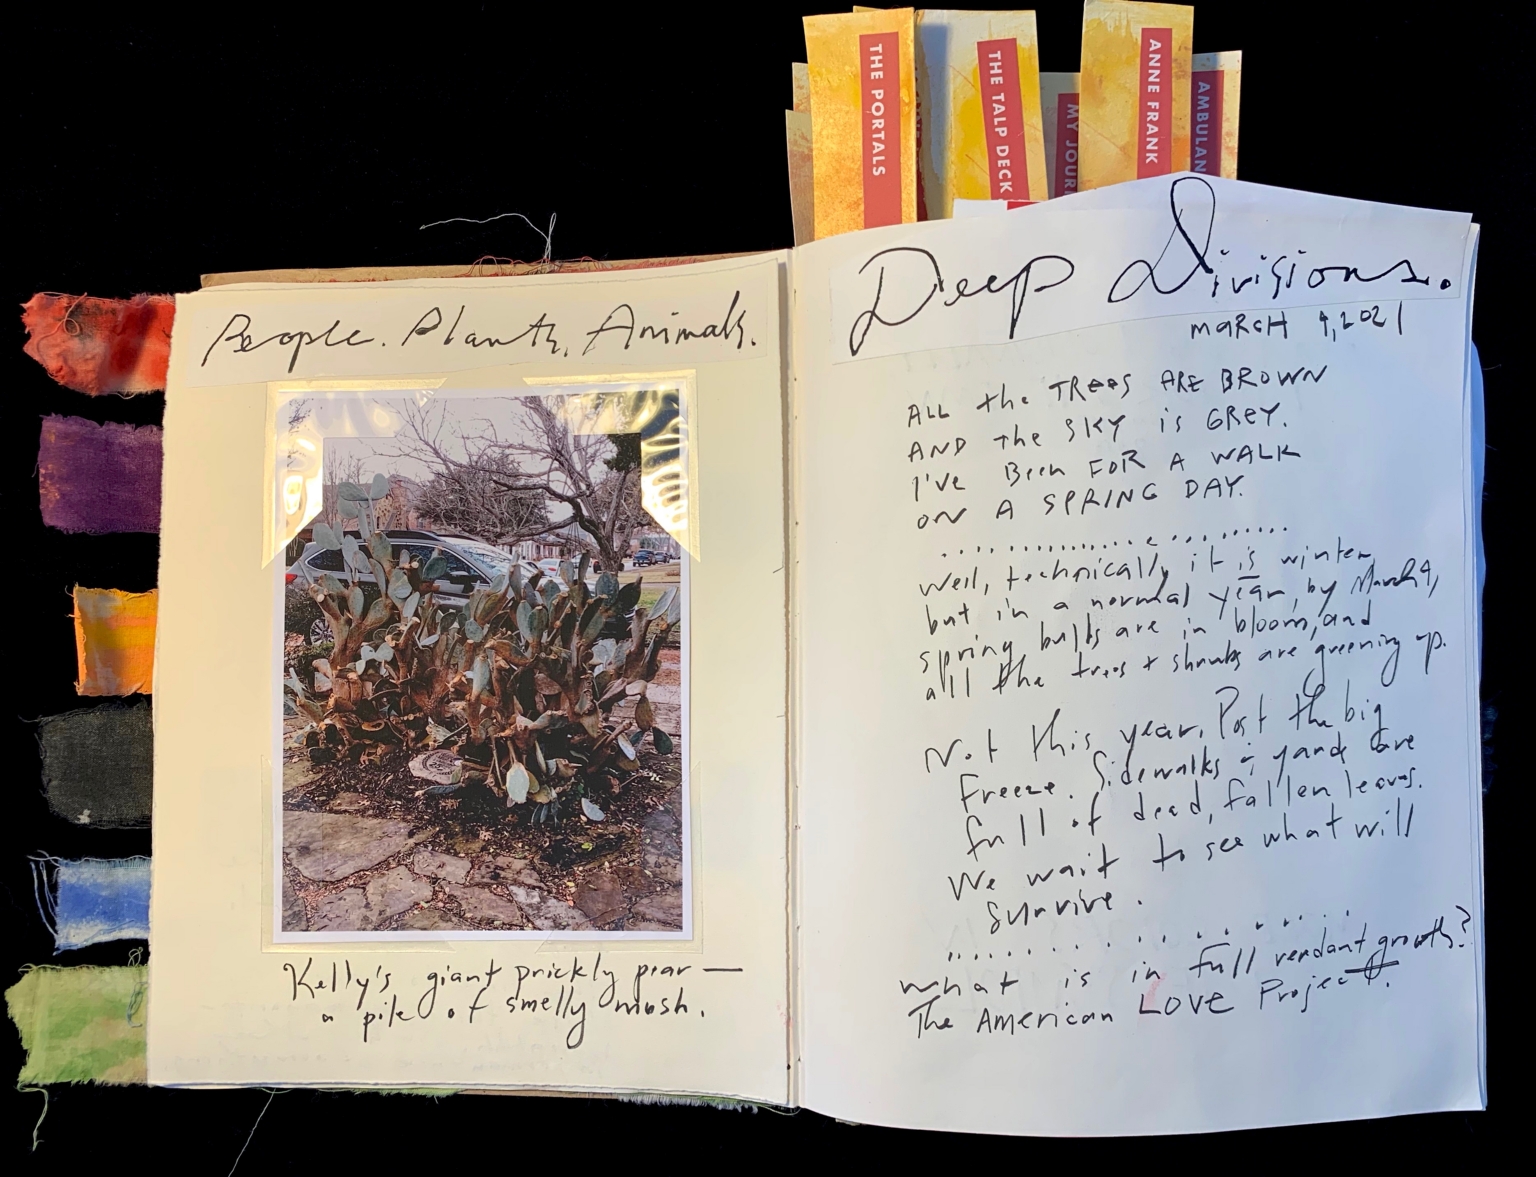 THE PORTALS
THE TALP DECK
MY JOUR
ANNE FRANK
AMBULAN
People. Plants. Animals.
Kelly's giant prickly pear —
a pile of smelly mush.
Deep Divisions.
MARCH 9, 2021
ALL the TREES ARE BROWN
AND the SKY is GREY.
I've Been FOR A WALK
ON A SPRING DAY.
Well, technically it is winter,
but in a normal year, by March 9,
spring bulbs are in bloom, and
all the trees + shrubs are greening up.
Not this year. Post the big
Freeze. Sidewalks & yards are
full of dead, fallen leaves.
We wait to see what will
survive.
What is in full verdant growth?
The American LOVE Project.